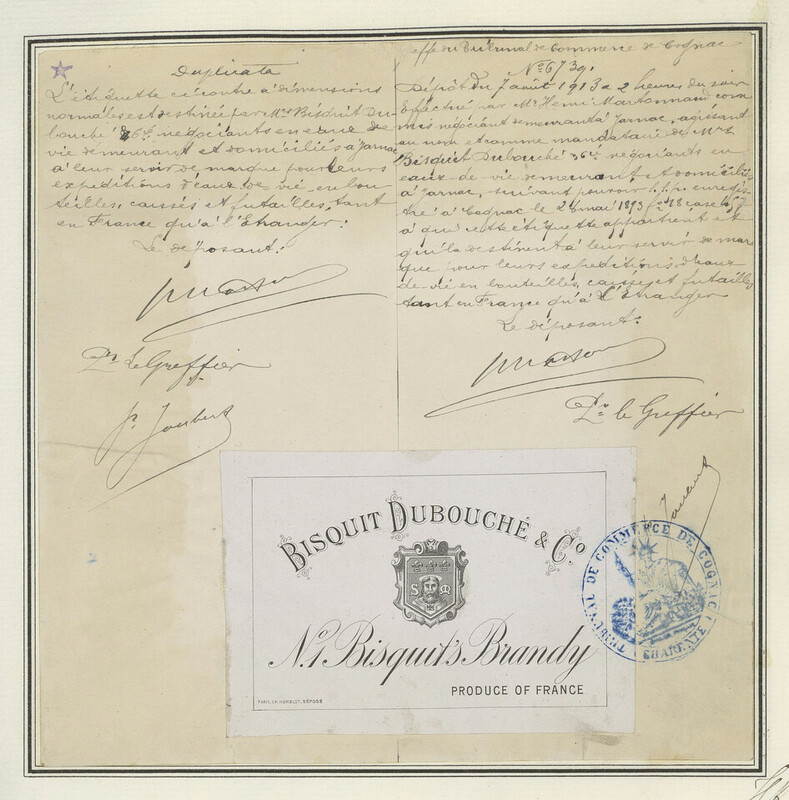 Duplicata
L'étiquette ci contre à dimensions
normales est destinée par Mrs Bisquit Du-
bouché & Cie négociants en eaux de
vie demeurant et domiciliés à Jarnac
à leur servir de marque pour leurs
expéditions d'eaux de vie en bou
teilles, caisses et futailles, tant
en France qu'à l'Etranger.
Le déposant:
Pr Le Greffier
Joubert
Greffe du Tribunal de Commerce de Cognac
No 6739.
Dépôt du 7 août 1913 à 2 heures du soir
Effectué par Mr Henri Martonnaud com
mis négociant demeurant à Jarnac, agissant
au nom et comme mandataire de Mrs
Bisquit Dubouché & Cie négociants en
eaux-de-vie demeurant et domiciliés
à Jarnac, suivant pouvoir s.s.p. enregis
tré à Cognac le 26 mai 1893 fo 88 case
à qui cette étiquette appartient et
qu'ils destinent à leur servir de mar
que pour leurs expéditions d'eaux-
de-vie en bouteilles, caisses et futailles
tant en France qu'à l'Etranger
Le déposant:
Pr le Greffier
BISQUIT DUBOUCHÉ & Co.
S M
No 1 Bisquit's Brandy
PRODUCE OF FRANCE
TRIBUNAL DE COMMERCE DE COGNAC
(CHARENTE)